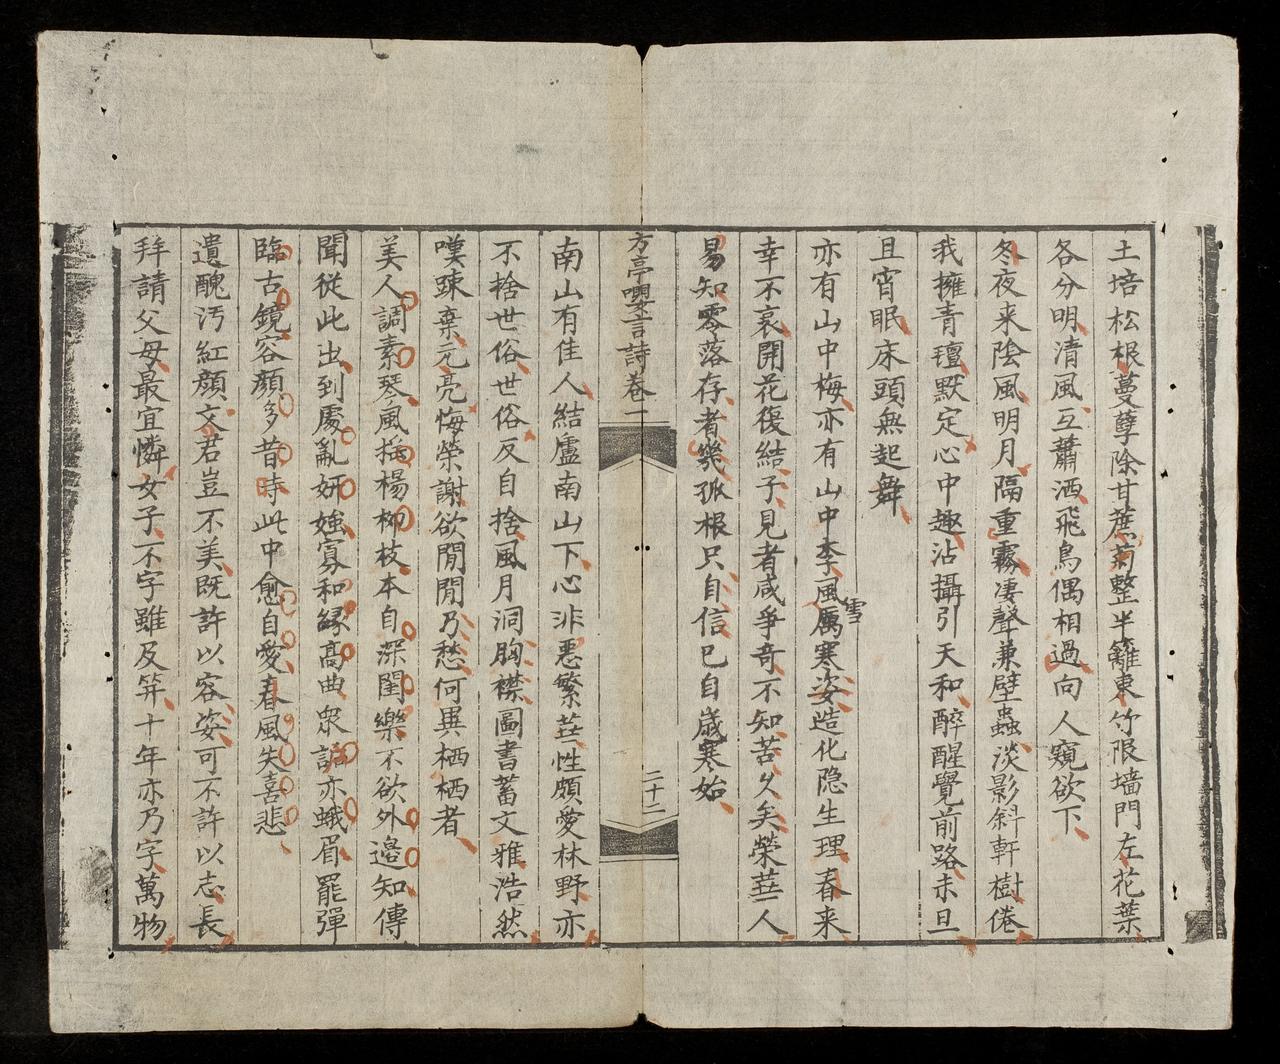 土培松根蔓孽除甘蔗菊整半籬東竹限墻門左花葉
各分明清風互蕭洒飛鳥偶相過向人窺欲下
冬夜来陰風明月隔重霧凄聲兼壁蟲淡影斜軒樹倦
我擁青氊默定心中趣沾攝引天和醉醒覺前路未旦
且宵眠床頭無起舞
亦有山中梅亦有山中李風雪厲寒姿造化隐生理春来
幸不哀開花復結子見者咸爭奇不知苦久矣榮華一人
易知零落存者幾孤根只自信已自歲寒始
方亭噢言詩卷一
二十二
南山有佳人結廬南山下心非悪繁華性頗愛林野亦
不捨世俗世俗反自捨風月洞胸襟圖書蓄文雅浩然
嘆疎棄元亮悔榮謝欲閒閒乃愁何異栖栖者
美人調素琴風揺楊柳枝本自深閨樂不欲外邉知傳
聞從此出到處亂妍媸寡和縁高曲衆謡亦蛾眉罷彈
臨古鏡容顔多昔時此中愈自愛春風失喜悲
遺醜汚紅顔文君豈不美既許以容姿可不許以志長
拜請父母最宜憐女子不字雖及笄十年亦乃字萬物